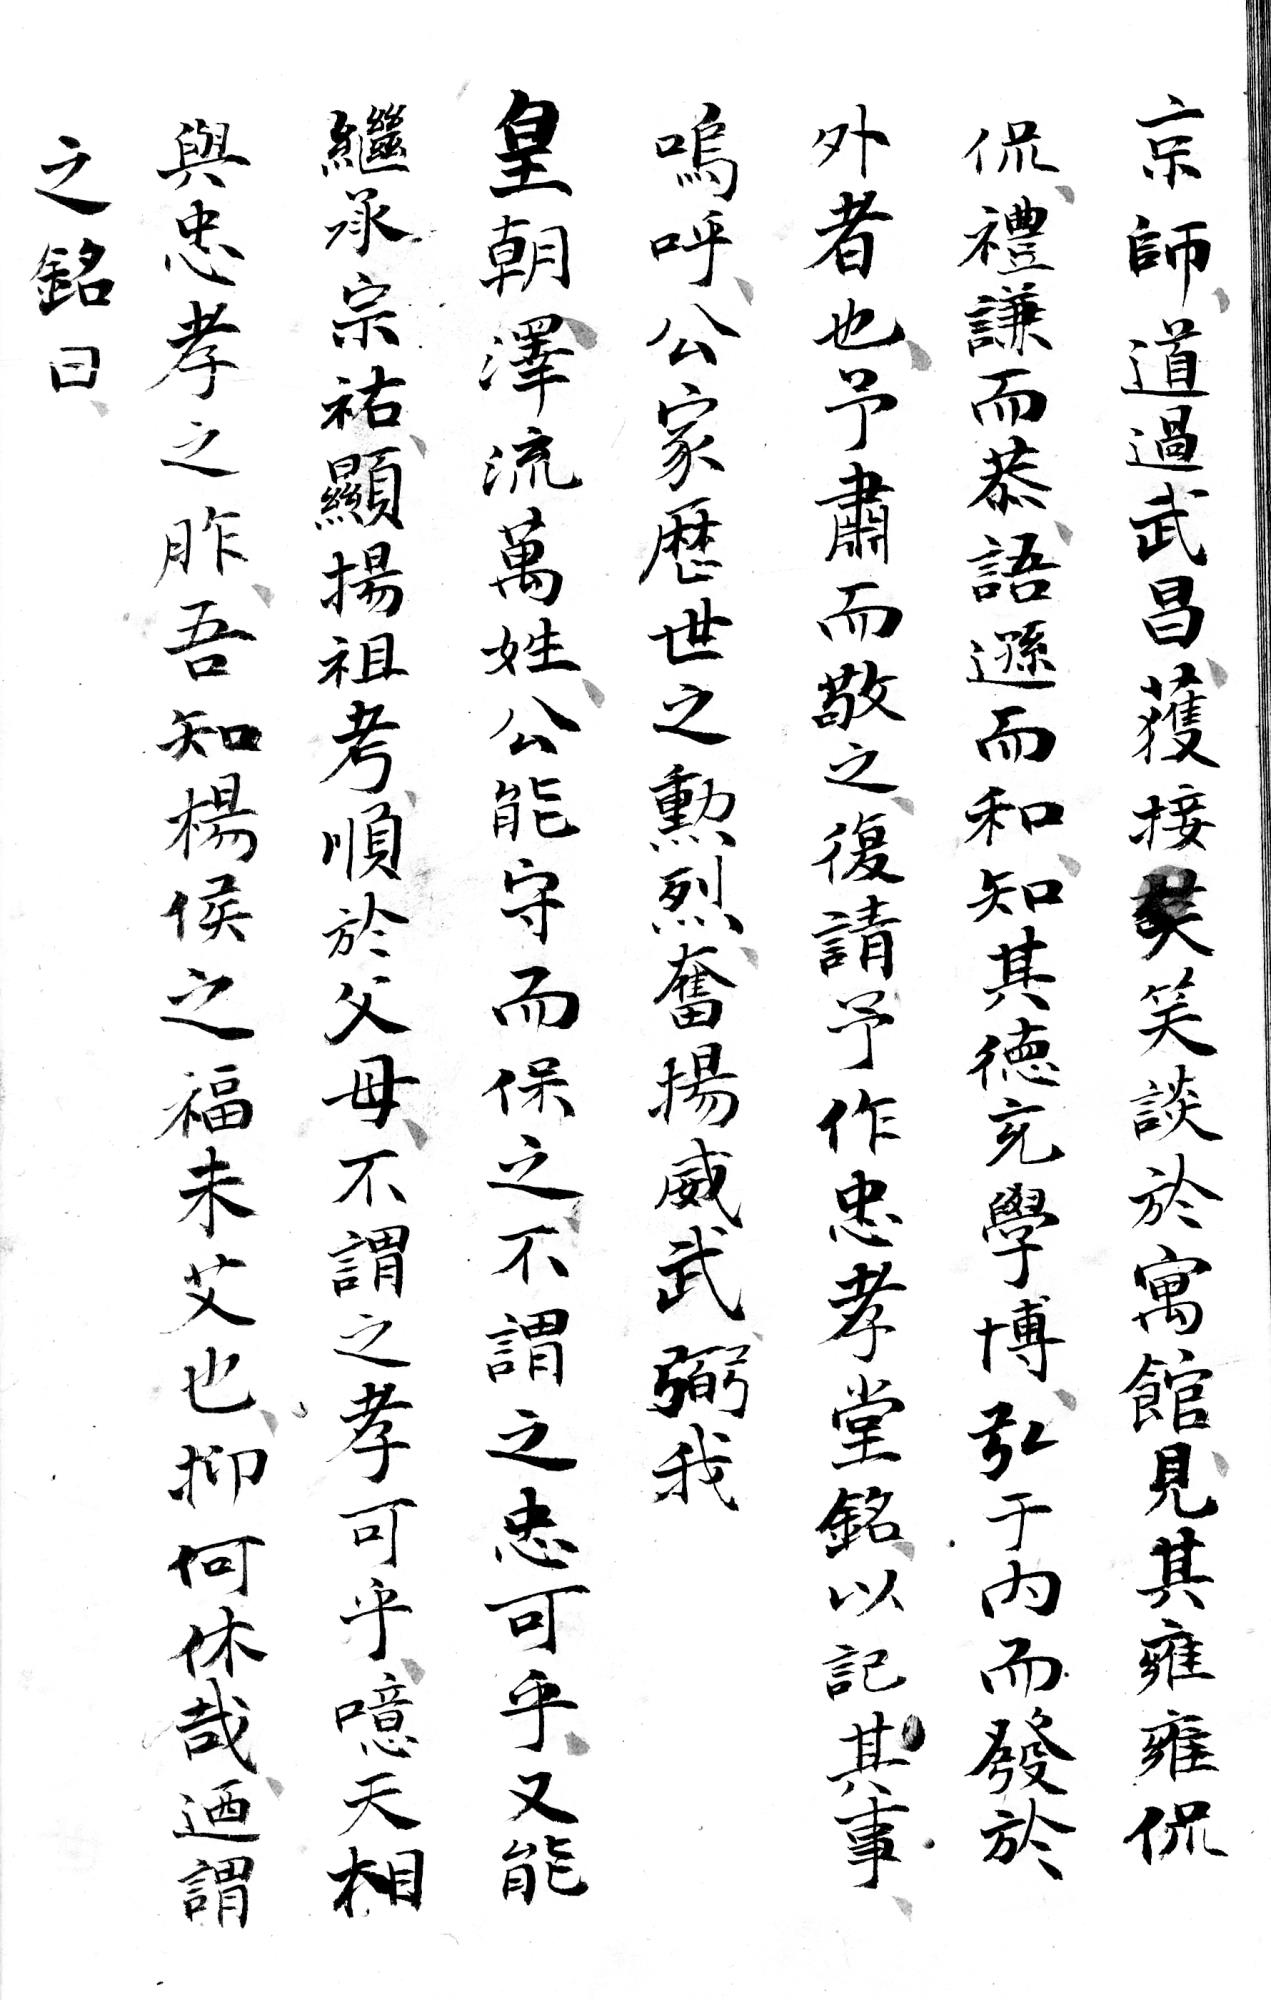 京師、道過武昌、獲接笑談於寓館、見其雍雍侃
侃、禮謙而恭、語遜而和、知其德充學博、弘于內而發於
外者也、予肅而敬之、復請予作忠孝堂銘、以記其事、
嗚呼、公家歷世之勲烈、奮揚威武、弼我
皇朝、澤流萬姓、公能守而保之、不謂之忠可乎、又能
繼承宗祐、顯揚祖考、順於父母、不謂之孝可乎、噫天相
與忠孝之胙、吾知楊侯之福未艾也、抑何休哉、迺謂
之銘曰、